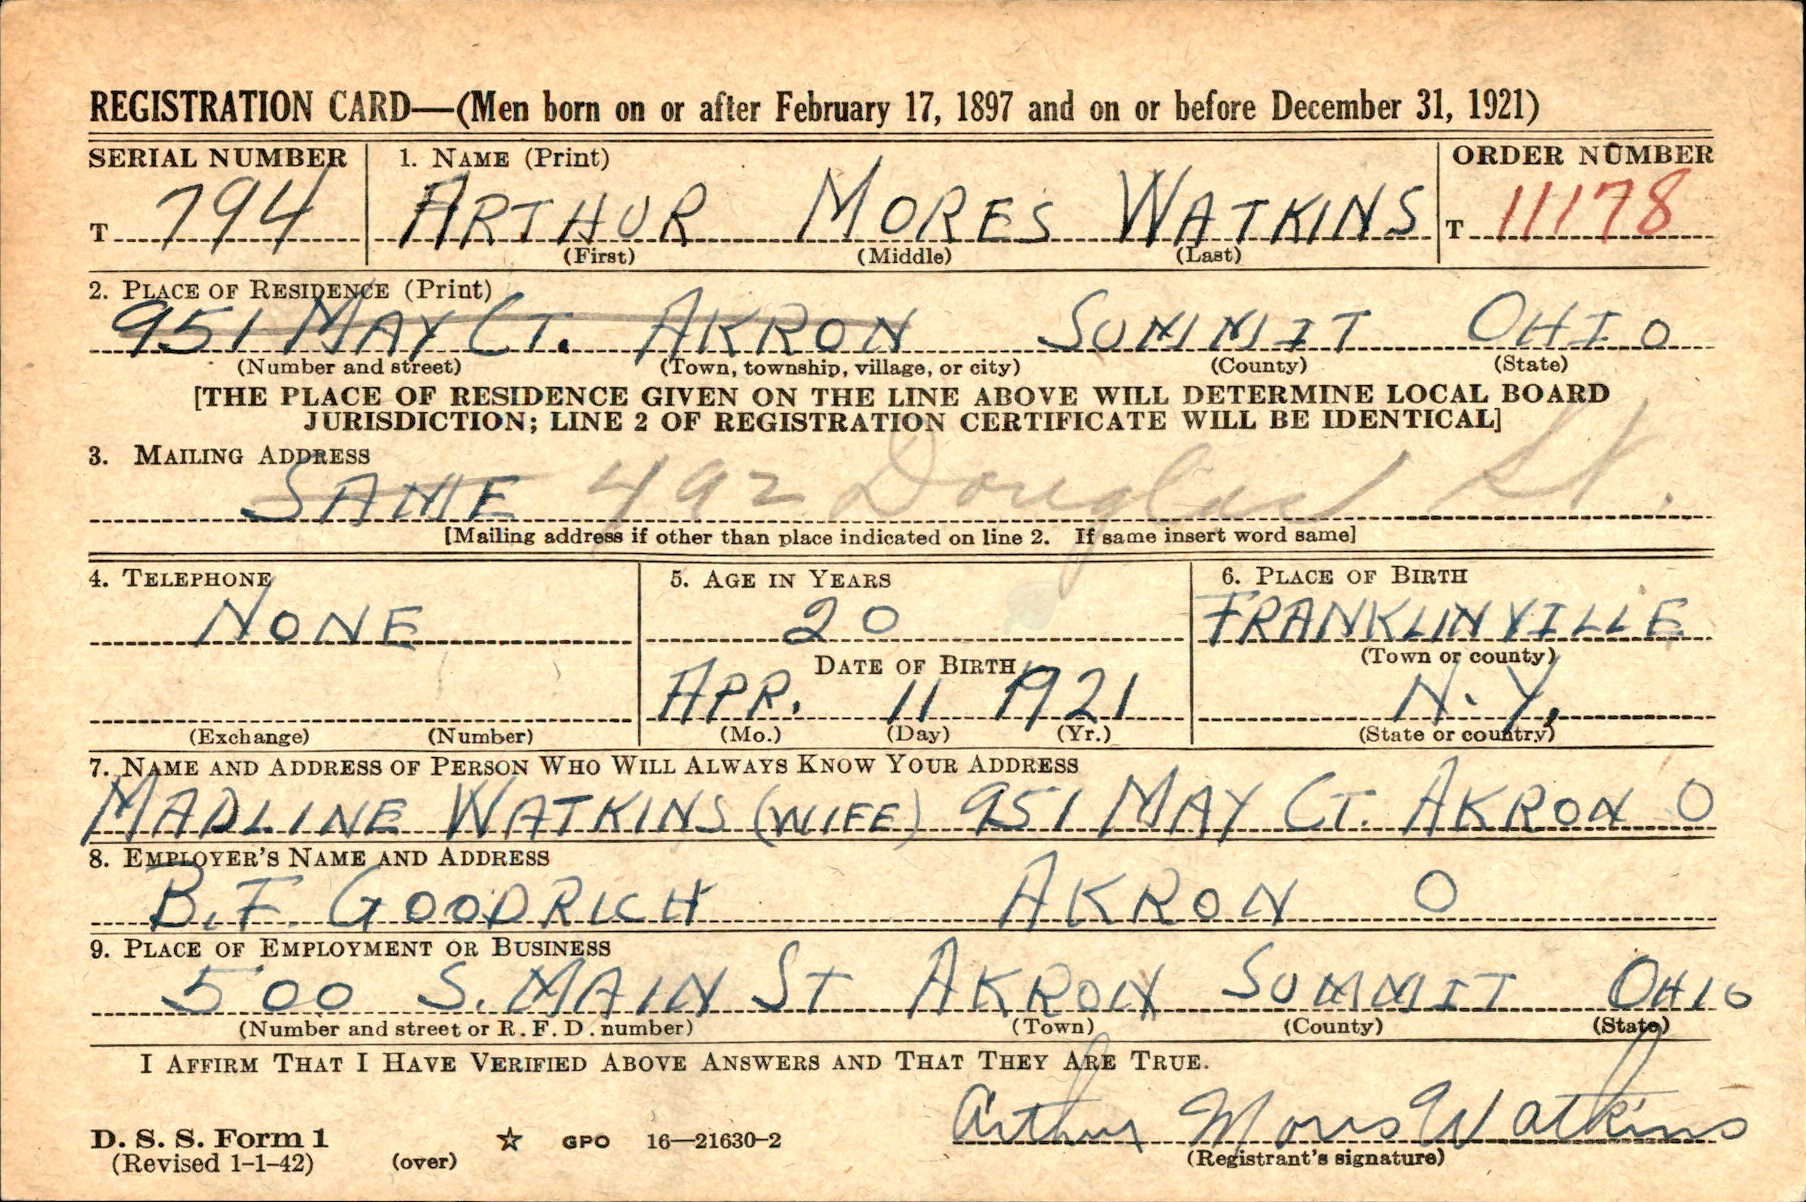 REGISTRATION CARD—(Men born on or after February 17, 1897 and on or before December 31, 1921)
SERIAL NUMBER 1. NAME (Print) ORDER NUMBER
T 794 ARTHUR MORES WATKINS T 11178
(First) (Middle) (Last)
2. PLACE OF RESIDENCE (Print)
951 MAY CT. AKRON SUMMIT OHIO
(Number and street) (Town, township, village, or city) (County) (State)
[THE PLACE OF RESIDENCE GIVEN ON THE LINE ABOVE WILL DETERMINE LOCAL BOARD
JURISDICTION; LINE 2 OF REGISTRATION CERTIFICATE WILL BE IDENTICAL]
3. MAILING ADDRESS
SAME 492 Douglas St.
[Mailing address if other than place indicated on line 2. If same insert word same]
4. TELEPHONE 5. AGE IN YEARS 6. PLACE OF BIRTH
NONE 20 FRANKLINVILLE
DATE OF BIRTH (Town or county)
APR. 11 1921 N.Y.
(Exchange) (Number) (Mo.) (Day) (Yr.) (State or country)
7. NAME AND ADDRESS OF PERSON WHO WILL ALWAYS KNOW YOUR ADDRESS
MADLINE WATKINS (WIFE) 951 MAY CT. AKRON O
8. EMPLOYER'S NAME AND ADDRESS
B.F. GOODRICH AKRON O
9. PLACE OF EMPLOYMENT OR BUSINESS
500 S. MAIN ST AKRON SUMMIT OHIO
(Number and street or R. F. D. number) (Town) (County) (State)
I AFFIRM THAT I HAVE VERIFIED ABOVE ANSWERS AND THAT THEY ARE TRUE.
Arthur Mores Watkins
D. S. S. Form 1 GPO 16—21630-2
(Revised 1-1-42) (over) (Registrant's signature)